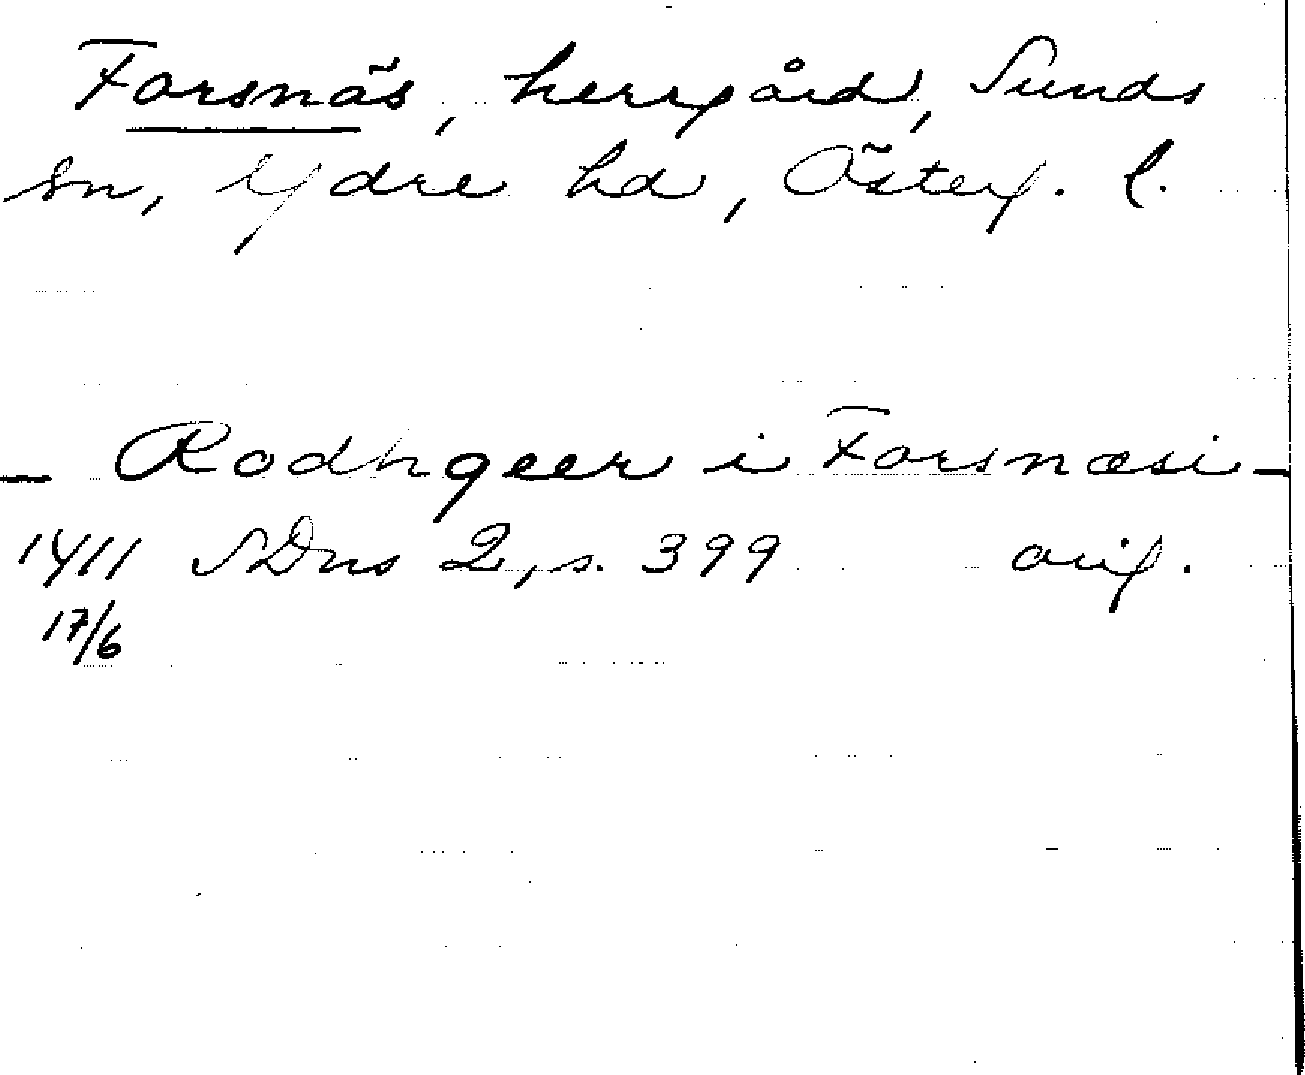 Forsnäs, herrgård, Sunds
sn, Ydre hd, Österg. l.
- Rodhgeer i Forsnæsi -
1411 SDns 2, s. 399 orig.
17/6